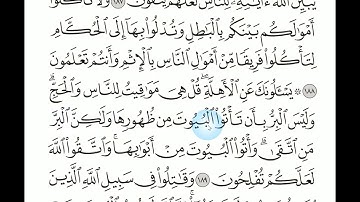 يُبَيِّنُ ٱللَّهُ ءَايَـٰتِهِۦ لِلنَّاسِ لَعَلَّهُمْ يَتَّقُونَ ١٨٧ وَلَا تَأْكُلُوٓا۟
أَمْوَٰلَكُم بَيْنَكُم بِٱلْبَـٰطِلِ وَتُدْلُوا۟ بِهَآ إِلَى ٱلْحُكَّامِ
لِتَأْكُلُوا۟ فَرِيقًا مِّنْ أَمْوَٰلِ ٱلنَّاسِ بِٱلْإِثْمِ وَأَنتُمْ تَعْلَمُونَ
١٨٨ ۞ يَسْـَٔلُونَكَ عَنِ ٱلْأَهِلَّةِ ۖ قُلْ هِىَ مَوَٰقِيتُ لِلنَّاسِ وَٱلْحَجِّ ۗ
وَلَيْسَ ٱلْبِرُّ بِأَن تَأْتُوا۟ ٱلْبُيُوتَ مِن ظُهُورِهَا وَلَـٰكِنَّ ٱلْبِرَّ
مَنِ ٱتَّقَىٰ ۗ وَأْتُوا۟ ٱلْبُيُوتَ مِنْ أَبْوَٰبِهَا ۚ وَٱتَّقُوا۟ ٱللَّهَ
لَعَلَّكُمْ تُفْلِحُونَ ١٨٩ وَقَـٰتِلُوا۟ فِى سَبِيلِ ٱللَّهِ ٱلَّذِينَ